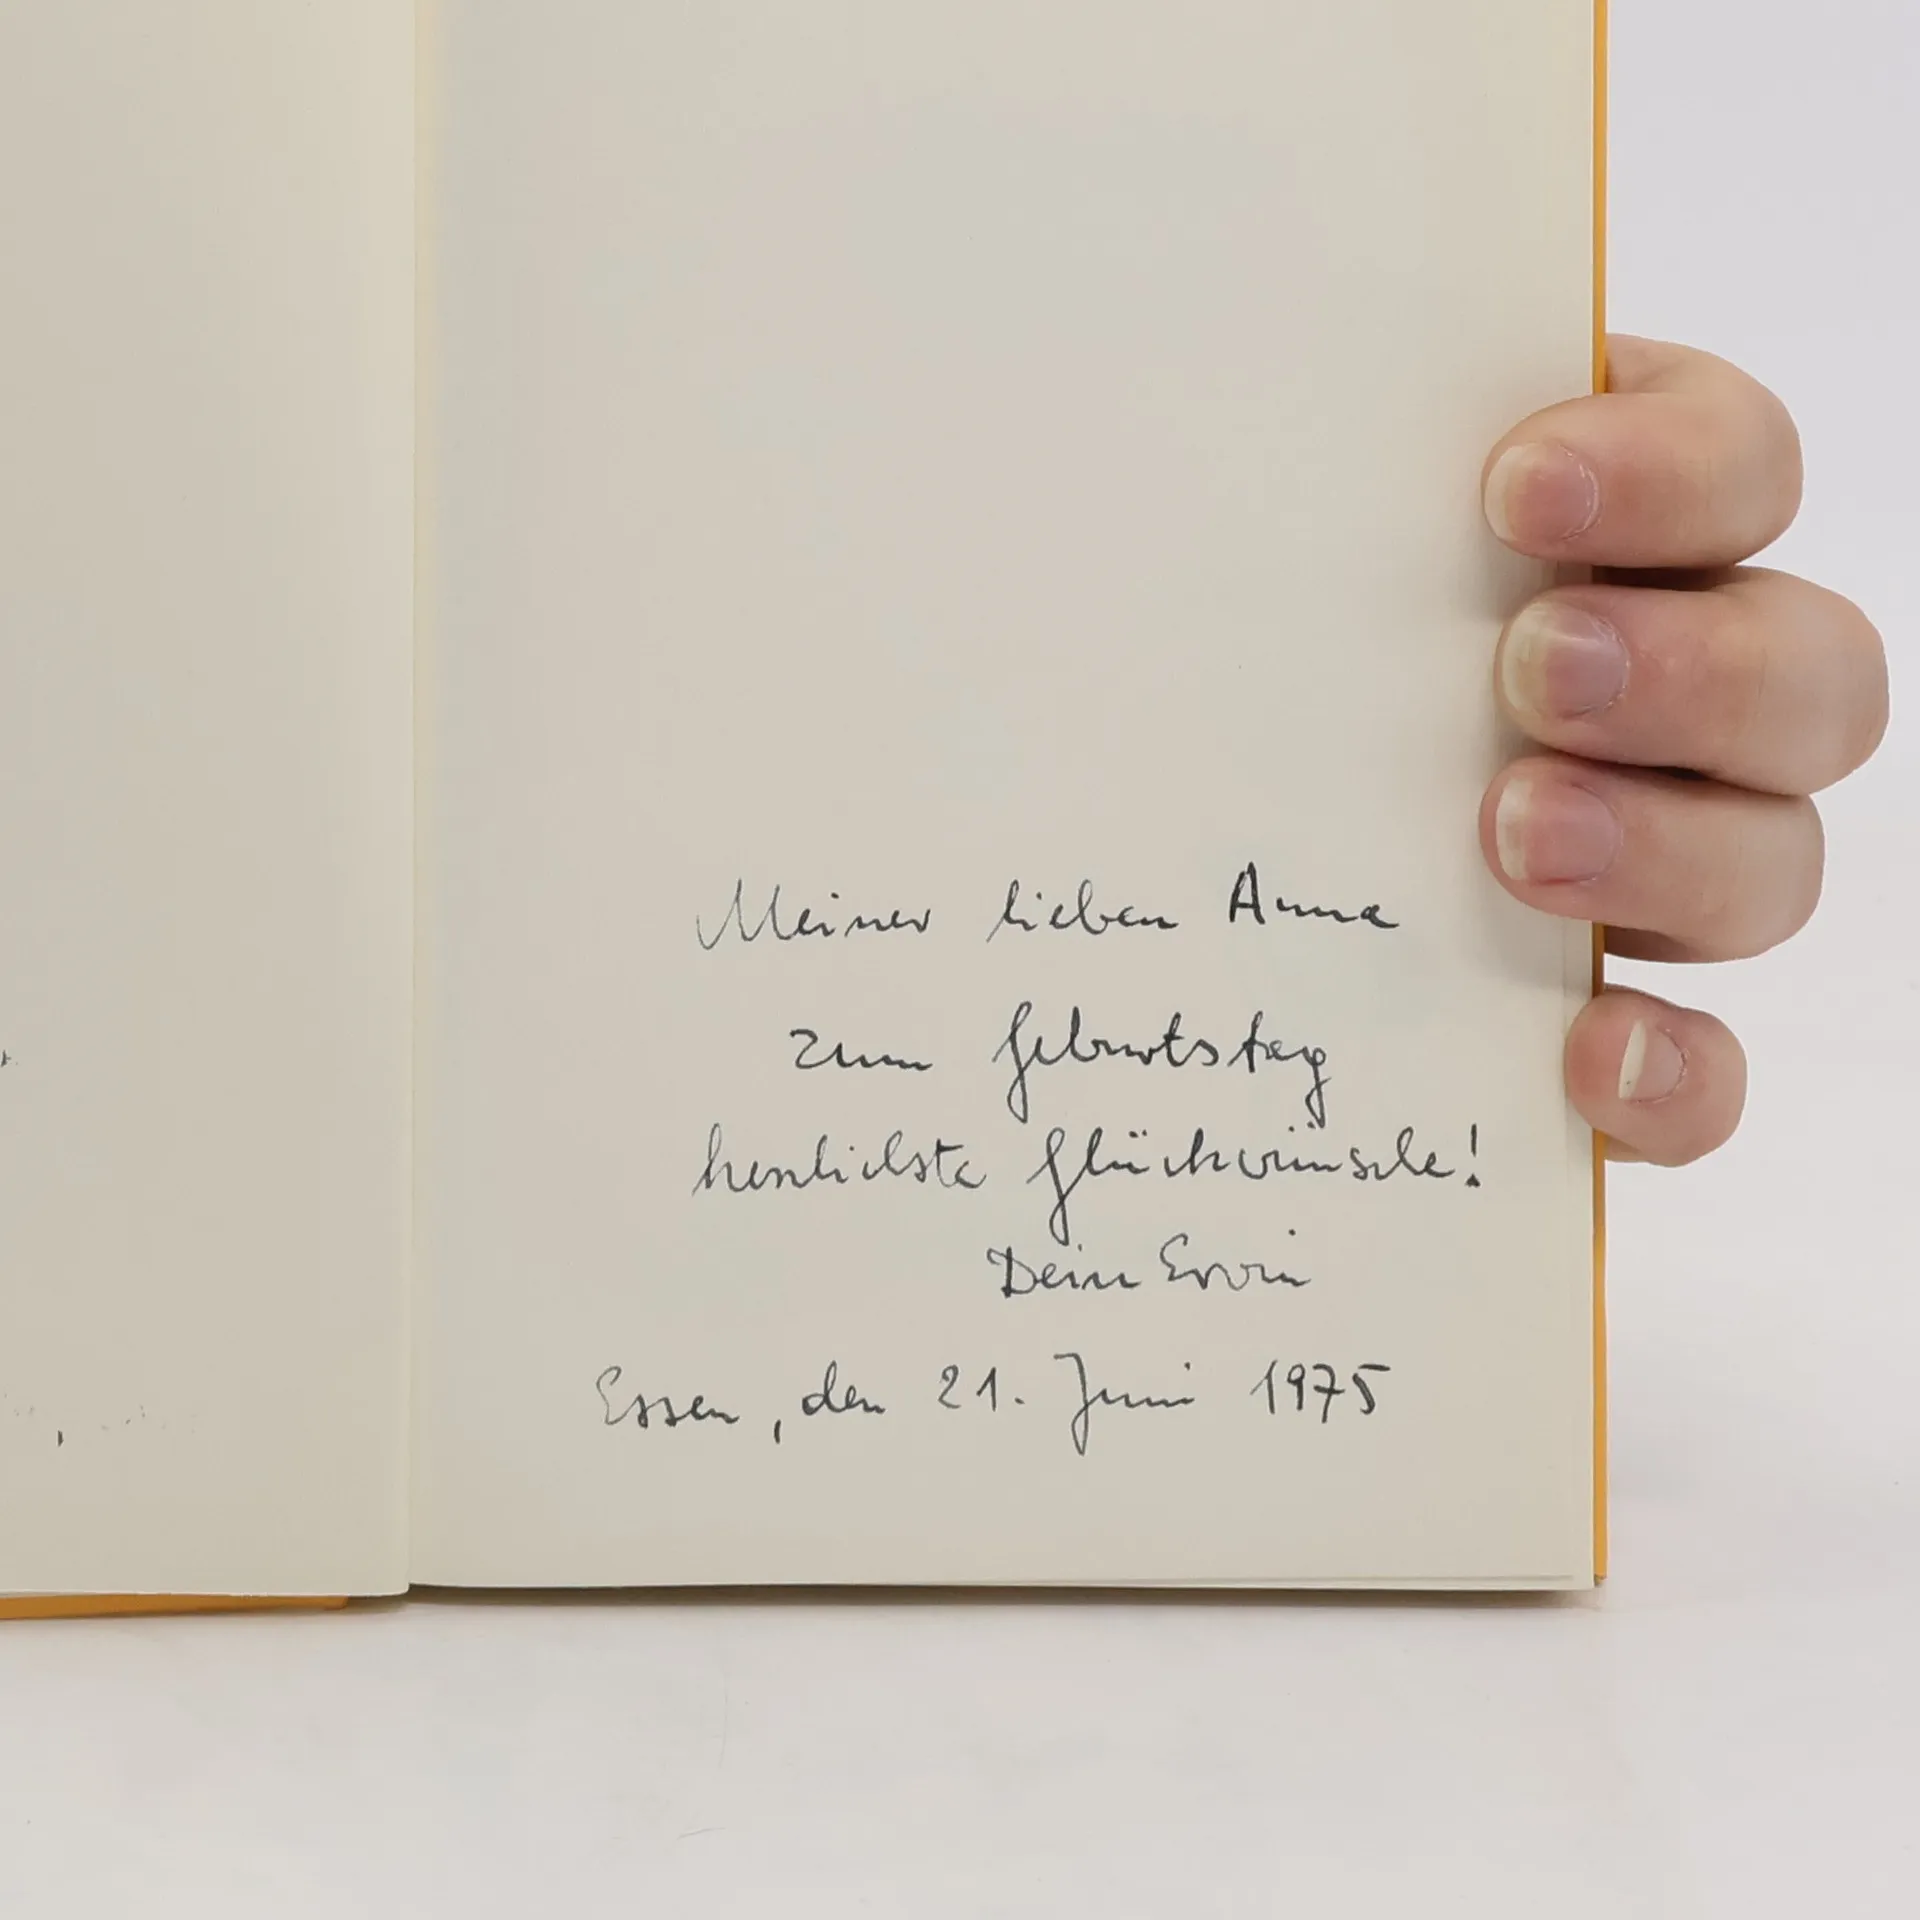 Meiner lieben Anna
zum Geburtstag
herzlichste Glückwünsche!
Dein Erwin
Essen, den 21. Juni 1975